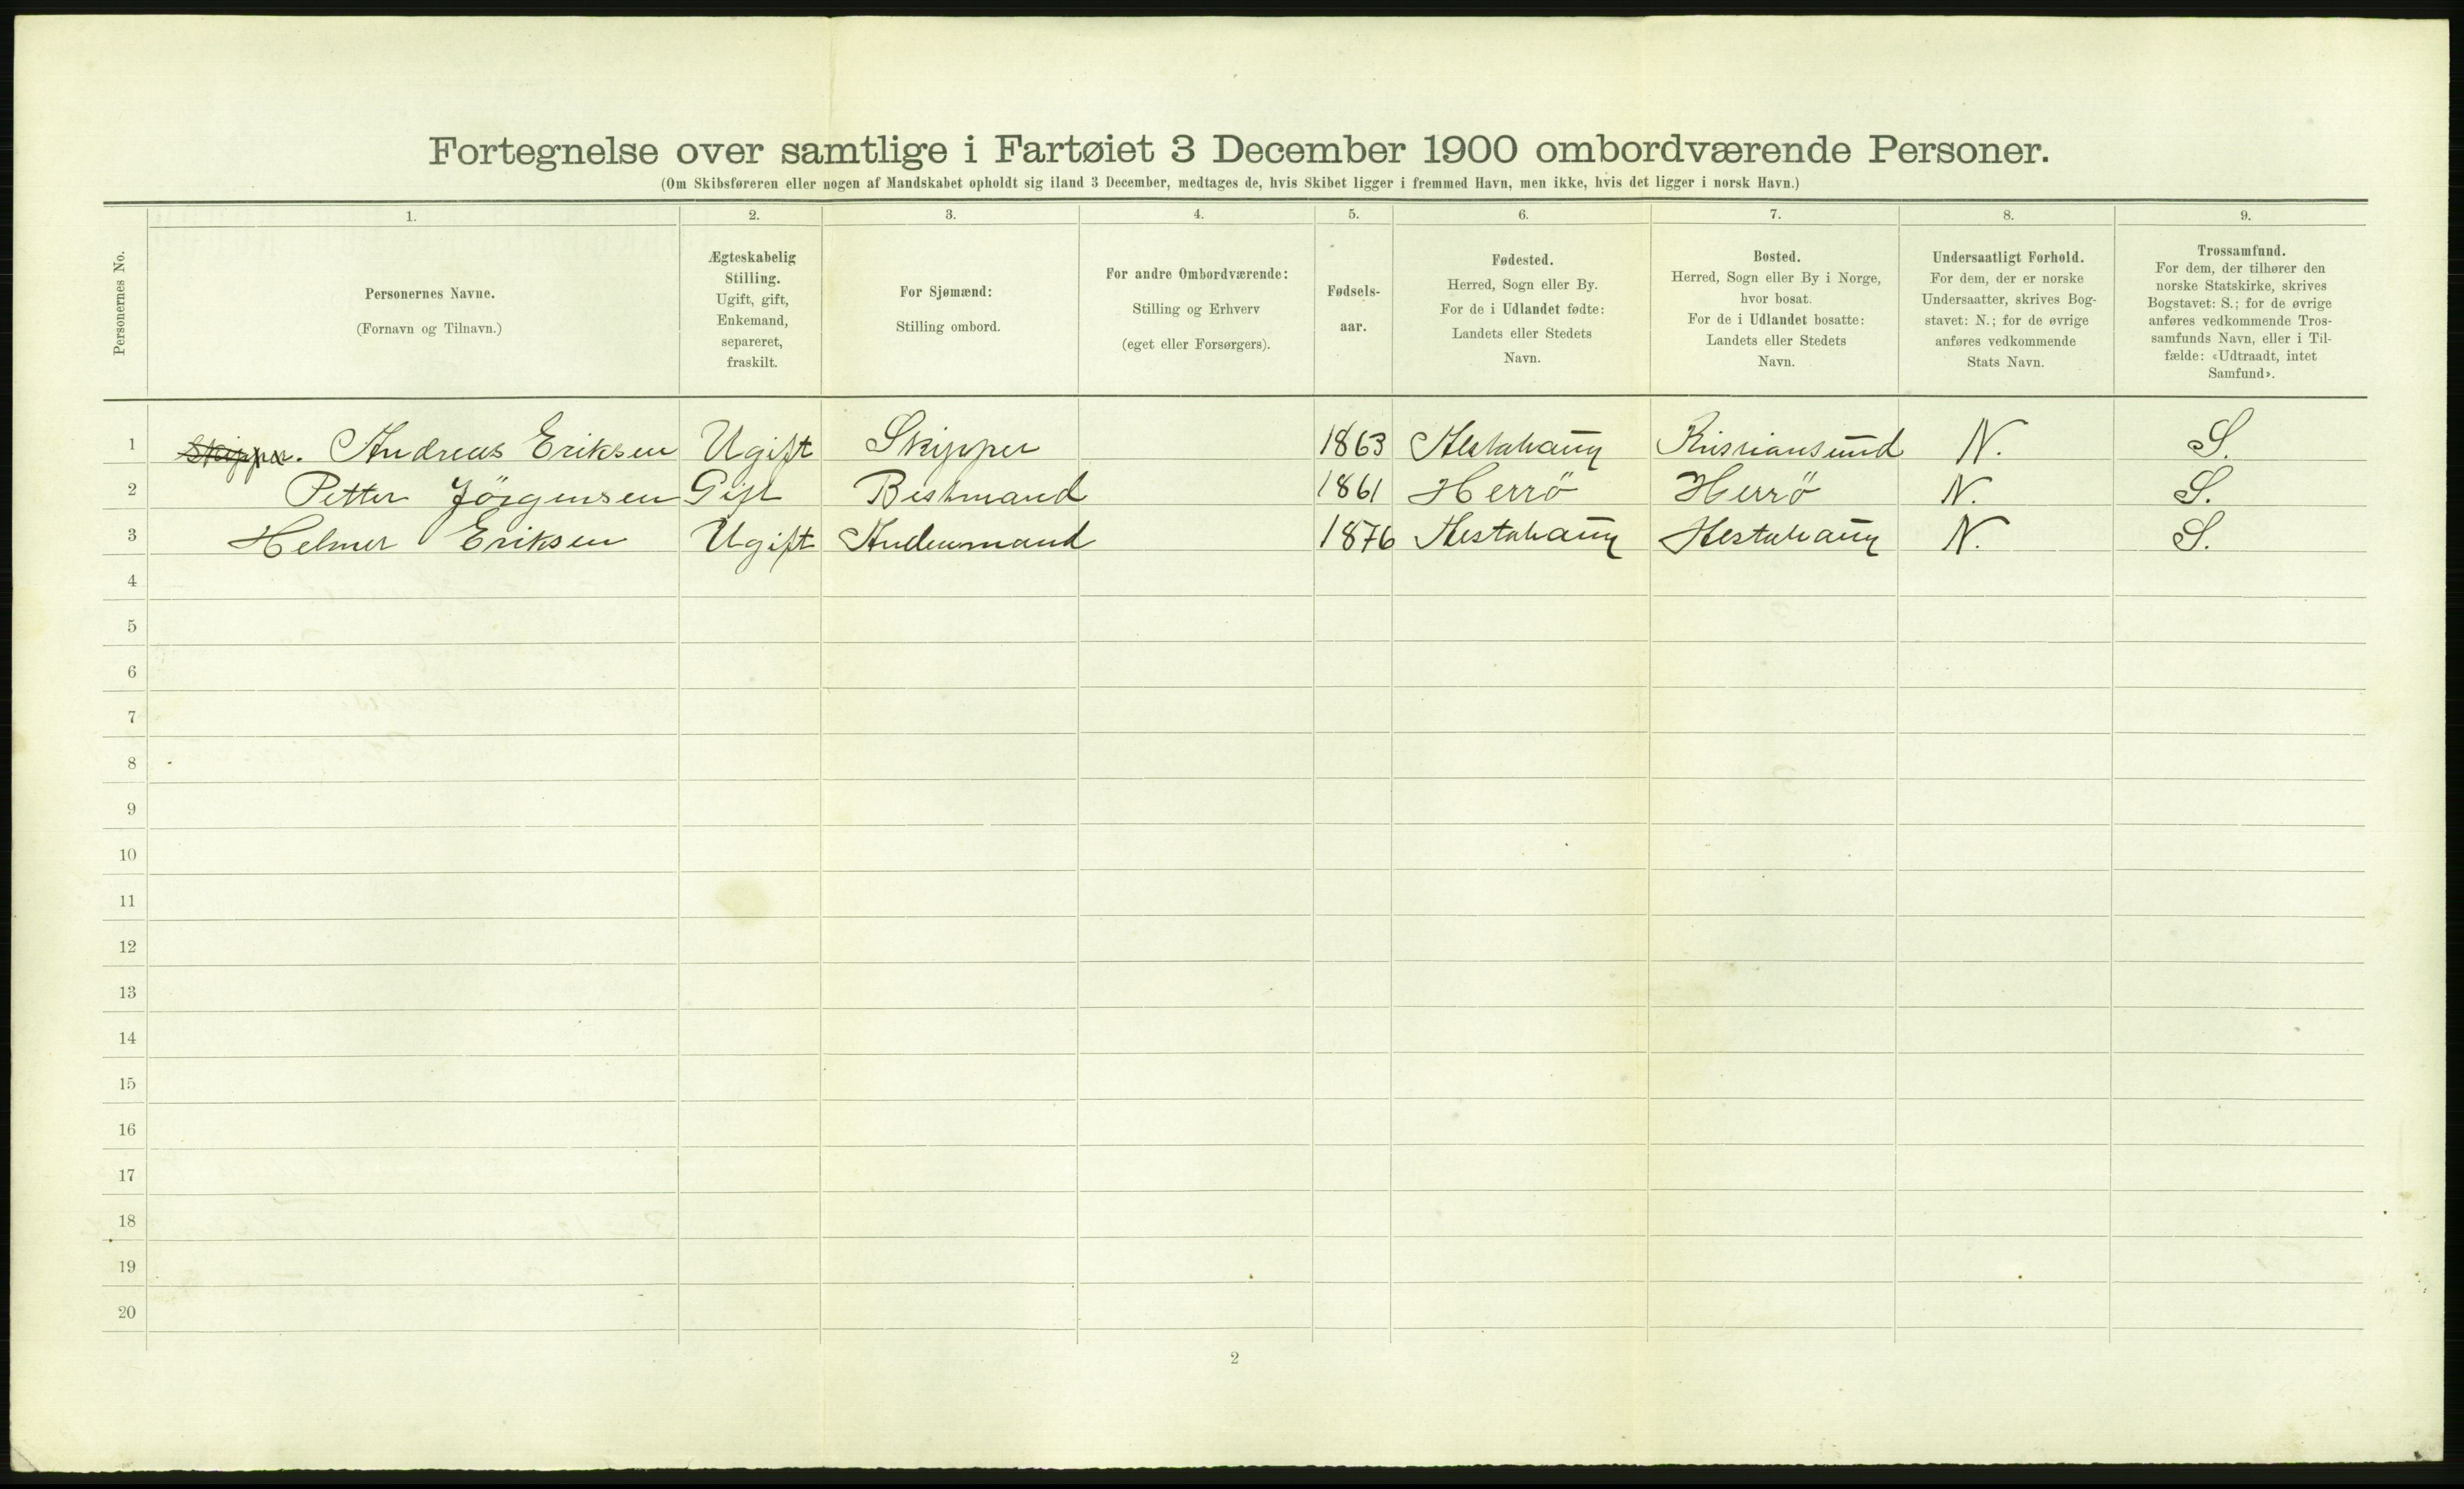 Fortegnelse over samtlige i Fartøiet 3 December 1900 ombordværende Personer.
(Om Skibsføreren eller nogen af Mandskabet opholdt sig iland 3 December, medtages de, hvis Skibet ligger i fremmed Havn, men ikke, hvis det ligger i norsk Havn.)
Personernes No.
1. 2. 3. 4. 5. 6. 7. 8. 9.
Personernes Navne.
(Fornavn og Tilnavn.)
Ægteskabelig
Stilling.
Ugift, gift,
Enkemand,
separeret,
fraskilt.
For Sjømænd:
Stilling ombord.
For andre Ombordværende:
Stilling og Erhverv
(eget eller Forsørgers).
Fødsels-
aar.
Fødested.
Herred, Sogn eller By.
For de i Udlandet fødte:
Landets eller Stedets
Navn.
Bosted.
Herred, Sogn eller By i Norge,
hvor bosat.
For de i Udlandet bosatte:
Landets eller Stedets
Navn.
Undersaatligt Forhold.
For dem, der er norske
Undersaatter, skrives Bog-
stavet: N.; for de øvrige
anføres vedkommende
Stats Navn.
Trossamfund.
For dem, der tilhører den
norske Statskirke, skrives
Bogstavet: S.; for de øvrige
anføres vedkommende Tros-
samfunds Navn, eller i Til-
fælde: «Udtraadt, intet
Samfund».
1 Skipper. Andreas Eriksen Ugift Skipper 1863 Kristiansund N. S.
2 Petter Jörgensen Gift Bestmand 1861 Herrö Herrö N. S.
3 Helmer Eriksen Ugift 1876 Hestahaug Hestahaug N. S.
4
5
6
7
8
9
10
11
12
13
14
15
16
17
18
19
20
2